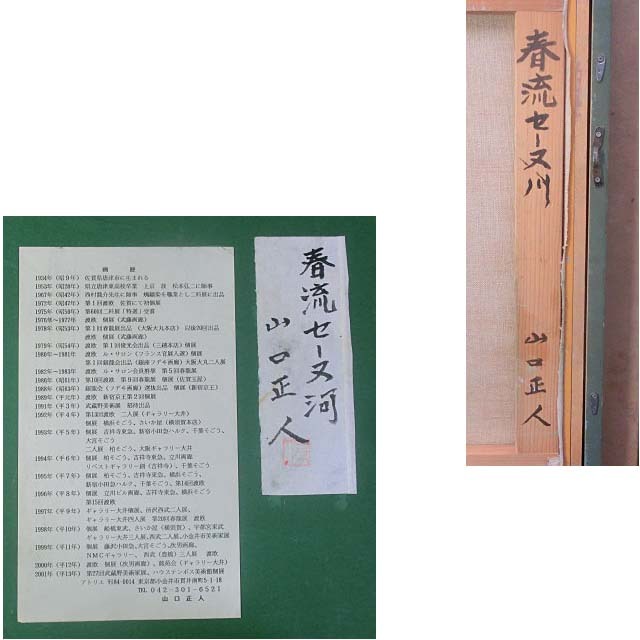 春流セーヌ川
山口正人
春流セーヌ河
山口正人
画歴
1934年（昭9年）佐賀県唐津市に生まれる
1953年（昭28年）県立唐津東高校卒業 上京 故 松本弘二に師事
1972年（昭47年）第1回渡欧 佐賀にて初個展
1975年（昭50年）第60回二科展「特選」受賞
1976年～1977年 渡欧 個展（武藤画廊）
1978年（昭53年）第1回春龍展出品（大阪大丸本店）以後20回出品
個展（武藤画廊）
1980年～1981年 渡欧 ル・サロン（フランス官展入選）個展
1982年～1983年 渡欧 ル・サロン会員推挙 第5回春龍展
1986年（昭61年）第10回渡欧 第9回春龍展 個展（佐賀玉屋）
1989年（平元年）個展 新宿京王第2回個展
1991年（平3年）武蔵野美術展 招待出品
1992年（平4年）第13回渡欧 二人展（ギャラリー大井）
個展 横浜そごう、さいか屋（横須賀本店）
1993年（平5年）個展 吉祥寺東急、新宿小田急ハルク、千葉そごう、
大宮そごう
二人展 柏そごう、大阪ギャラリー大井
1994年（平6年）個展 柏そごう、吉祥寺東急、立川画廊
1995年（平7年）個展 柏そごう、吉祥寺東急、横浜そごう
新宿小田急ハルク、千葉そごう、第14回渡欧
1996年（平8年）個展 立川ビル画廊、吉祥寺東急、横浜そごう
第15回渡欧
1997年（平9年）ギャラリー大井個展、所沢西武二人展、
ギャラリー大井四人展 第20回春龍展 渡欧
1998年（平10年）個展 船橋東武、さいか屋（横須賀）、宇都宮東武
ギャラリー大井三人展、西武二人展、小金井市美術家展
1999年（平11年）個展 藤沢小田急、大宮そごう、次男画廊、
NMCギャラリー、西武（豊橋）三人展 渡欧
2000年（平12年）渡欧 個展（次男画廊）、
2001年（平13年）第27回武蔵野美術家展、ハウステンボス美術館個展
アトリエ 〒184-0014 東京都小金井市貫井南町5-1-18
TEL 042-301-6521
山口正人